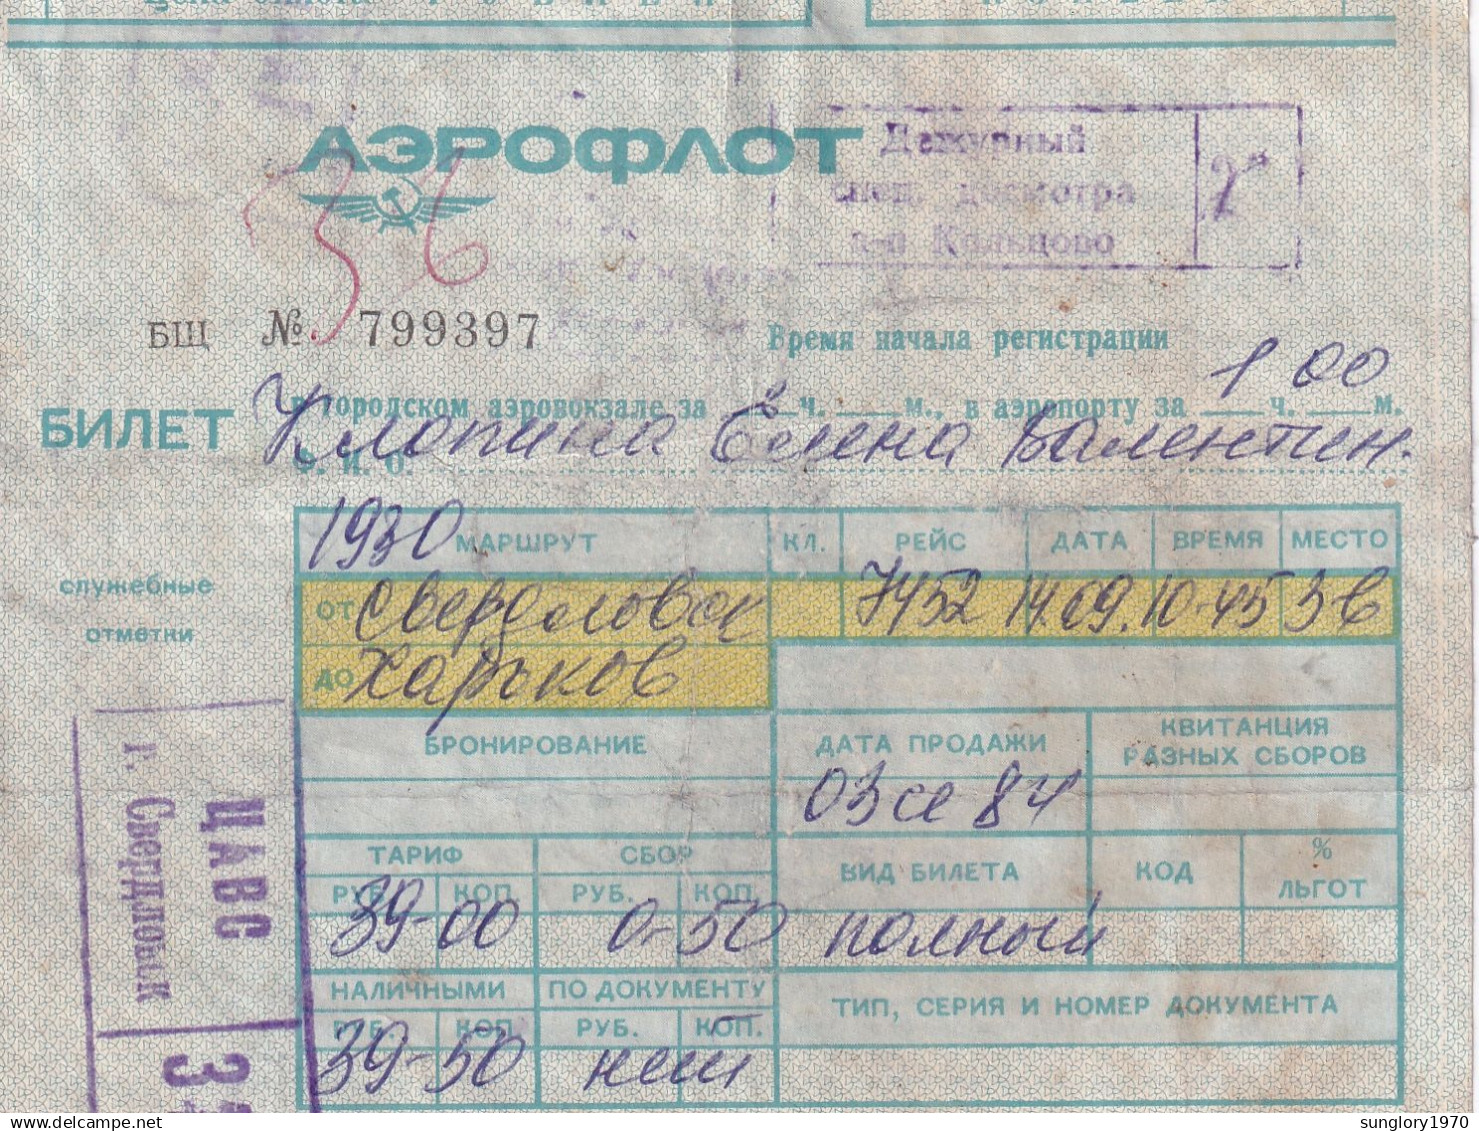 АЭРОФЛОТ
Дежурный
спец. досмотра
а-п Кольцово
36
БЩ № 799397
Время начала регистрации
1 00
в городском аэровокзале за ч. м., в аэропорту за ч. м.
БИЛЕТ
Клопина Елена Валентин.
Ф. И. О.
1930
МАРШРУТ КЛ. РЕЙС ДАТА ВРЕМЯ МЕСТО
служебные
отметки
ОТ Свердловск 7452 14.09. 10-45 3в
ДО Харьков
БРОНИРОВАНИЕ ДАТА ПРОДАЖИ КВИТАНЦИЯ
РАЗНЫХ СБОРОВ
03 се 84
ТАРИФ СБОР ВИД БИЛЕТА КОД % ЛЬГОТ
РУБ. КОП. РУБ. КОП.
39-00 0-50 полный
НАЛИЧНЫМИ ПО ДОКУМЕНТУ ТИП, СЕРИЯ И НОМЕР ДОКУМЕНТА
РУБ. КОП. РУБ. КОП.
39-50 нет
ЦАВС
г. Свердловск
delcampe.net
sunglory1970